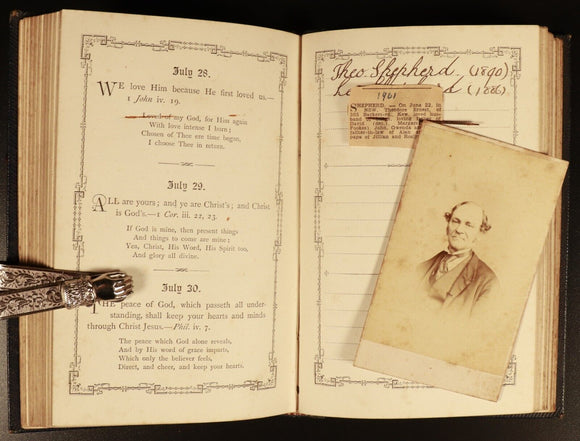 July 28.
WE love Him because He first loved us.—
1 John iv. 19.
Loved of my God, for Him again
With love intense I burn;
Chosen of Thee ere time began,
I choose Thee in return.
July 29.
ALL are yours; and ye are Christ's; and Christ
is God's.—1 Cor. iii. 22, 23.
If God is mine, then present things
And things to come are mine;
Yea, Christ, His Word, His Spirit too,
And glory all divine.
July 30.
THE peace of God, which passeth all under-
standing, shall keep your hearts and minds
through Christ Jesus.—Phil. iv. 7.
The peace which God alone reveals,
And by His word of grace imparts,
Which only the believer feels,
Direct, and cheer, and keep your hearts.
Theo. Shepherd. (1890)
(1886)
1961
SHEPHERD.—On June 22, in
Theodore Ernest, of
husband
David
John,
father-in-law of Alan
papa of Jillian and